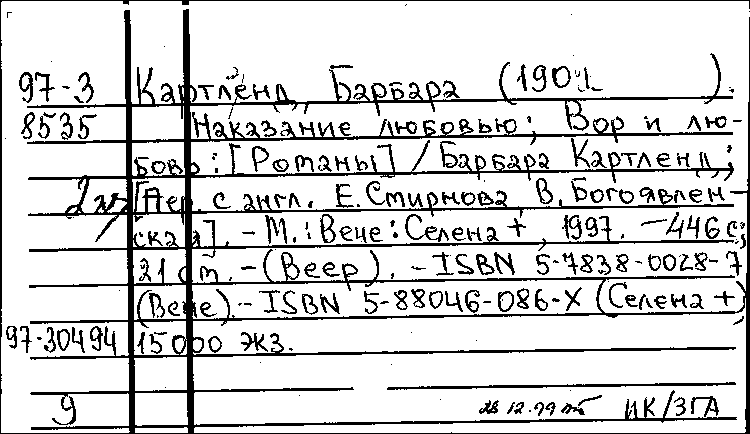 97-3 Картленд, Барбара (1901 ).
8535 Наказание любовью; Вор и лю-
бовь: [Романы] / Барбара Картленд;
[Пер. с англ. Е. Смирнова, В. Богоявлен-
ская]. - М.: Вече: Селена +, 1997. - 446 с.;
21 см. - (Веер). - ISBN 5-7838-0028-7
(Вече). - ISBN 5-88046-086-X (Селена +)
97-30494 15000 экз.
9 12.99 ИК/ЗГА